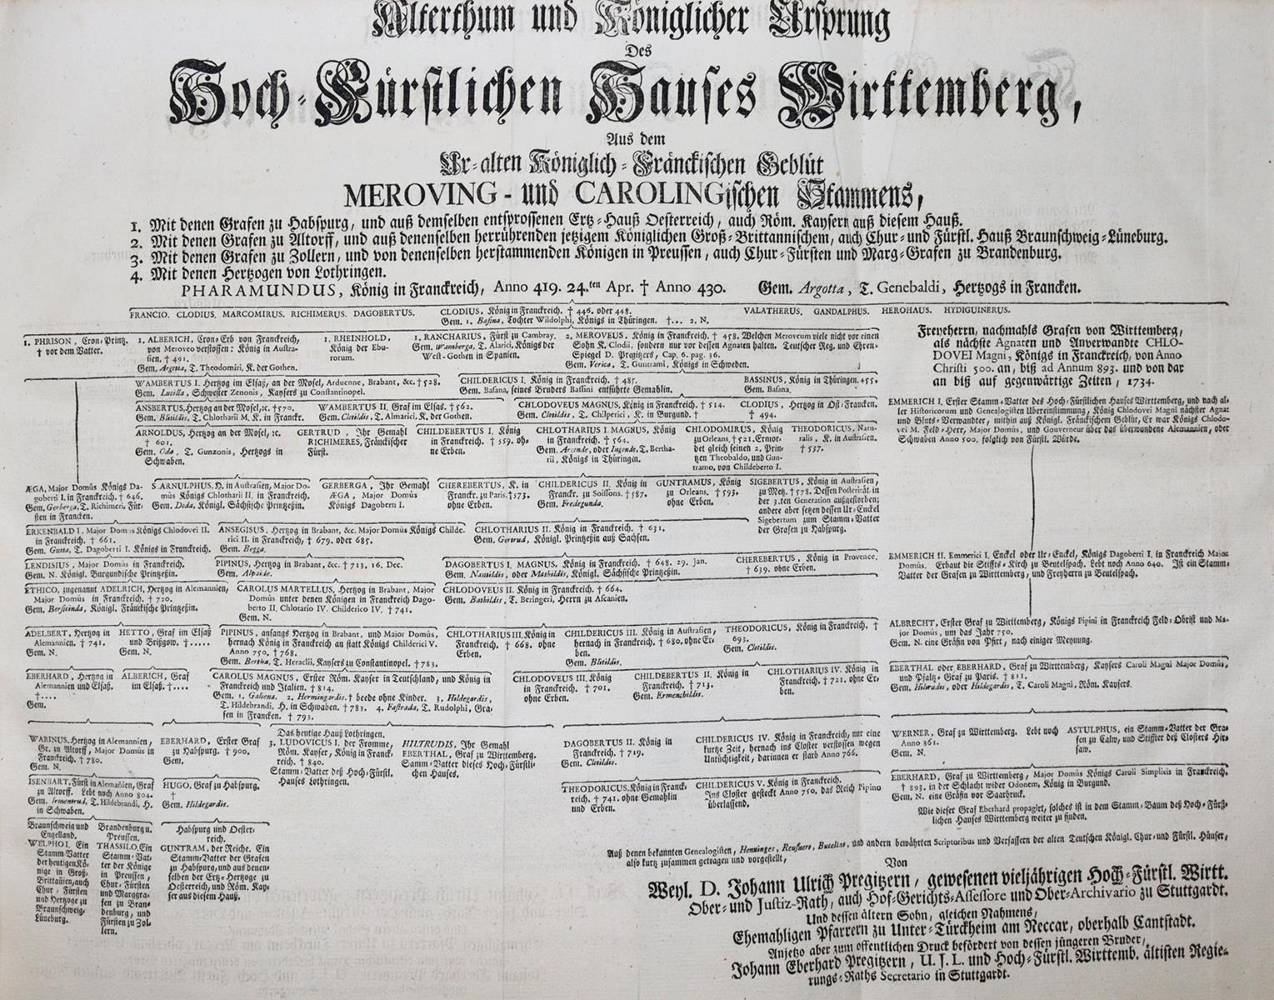 Alterthum und Königlicher Ursprung
Des
Hoch-Fürstlichen Hauses Wirttemberg,
Aus dem
Ur-alten Königlich-Fränckischen Geblüt
MEROVING- und CAROLINGischen Stammens,
1. Mit denen Grafen zu Habspurg, und auß demselben entsprossenen Ertz-Hauß Oesterreich, auch Röm. Kaysern auß diesem Hauß.
2. Mit denen Grafen zu Altorff, und auß denenselben herrührenden jetzigem Königlichen Groß-Brittannischem, auch Chur- und Fürstl. Hauß Braunschweig-Lüneburg.
3. Mit denen Grafen zu Zollern, und von denenselben herstammenden Königen in Preussen, auch Chur-Fürsten und Marg-Grafen zu Brandenburg.
4. Mit denen Hertzogen von Lothringen.
PHARAMUNDUS, König in Franckreich, Anno 419. 24.ten Apr. † Anno 430. Gem. Argotta, T. Genebaldi, Hertzogs in Francken.
FRANCIO. CLODIUS. MARCOMIRUS. RICHIMERUS. DAGOBERTUS.
CLODIUS, König in Franckreich. † 446. oder 448.
Gem. 1. Basina, Tochter Wildolphi, Königs in Thüringen. †... 2. N.
VALATHERUS. GANDALPHUS. HEROHAUS. HYDIGUINERUS.
1. PHRISON, Cron-Printz,
† vor dem Vatter.
1. ALBERICH, Cron-Erb von Franckreich,
von Meroveo verstossen: König in Austra-
sien. † 491.
Gem. Argotta, T. Theodomiri, K. der Gothen.
1. RHEINHOLD,
König der Ebu-
rorum.
1. RANCHARIUS, Fürst zu Cambray.
Gem. Wamberga, T. Alarici, Königs der
West-Gothen in Spanien.
2. MEROVEUS, König in Franckreich. † 458. Welchen Meroveum viele nicht vor einen
Sohn K. Clodii, sondern nur vor dessen Agnaten halten. Teutscher Reg. und Ehren-
Spiegel D. Pregitzers, Cap. 6. pag. 16.
Gem. Verica, T. Guntrami, Königs in Schweden.
Freyeherrn, nachmahls Grafen von Wirttemberg,
als nächste Agnaten und Anverwandte CHLO-
DOVEI Magni, Königs in Franckreich, von Anno
Christi 500. an, biß ad Annum 893. und von dar
an biß auf gegenwärtige Zeiten, 1734.
WAMBERTUS I. Hertzog im Elsaß, an der Mosel, Arduenne, Brabant, &c. † 528.
Gem. Lucilla, Schwester Zenonis, Kaysers zu Constantinopel.
CHILDERICUS I. König in Franckreich. † 485.
Gem. Basina, seines Bruders Bassini entführte Gemahlin.
BASSINUS, König in Thüringen. 455.
Gem. Basina.
ANSBERTUS, Hertzog an der Mosel, &c. † 570.
Gem. Blitildis, T. Chlotharii M. K. in Franckr.
WAMBERTUS II. Graf im Elsaß. † 562.
Gem. Clotildis, T. Almarici, K. der Gothen.
CHLODOVEUS MAGNUS, König in Franckreich. † 514.
Gem. Clotildis, T. Chilperici, K. in Burgund. †
CLODIUS, Hertzog in Ost-Francken.
† 494.
EMMERICH I. Erster Stamm-Vatter des Hoch-Fürstlichen Hauses Wirttemberg, und nach al-
ler Historicorum und Genealogisten Ubereinstimmung, König Chlodovei Magni nächster Agnat
und Bluts-Verwandter, mithin auß Königl. Fränckischem Geblüt, Er war Königs Chlodo-
vei M. Feld-Herr, Major Domûs, und Gouverneur über das überwundene Alemannien, oder
Schwaben Anno 500, folglich von Fürstl. Würde.
ARNOLDUS, Hertzog an der Mosel, &c.
† 601.
Gem. Oda, T. Gunzonis, Hertzogs in
Schwaben.
GERTRUD, Ihr Gemahl
RICHIMERES, Fränckischer
Fürst.
CHILDEBERTUS I. König
in Franckreich. † 559. oh-
ne Erben.
CHLOTHARIUS I. MAGNUS, König
in Franckreich. † 564.
Gem. Arsende, oder Ingende, T. Bertha-
rii, Königs in Thüringen.
CHLODOMIRUS, König
zu Orleans, † 521. Ermor-
det gleich seinen 2. Prin-
tzen Theobaldo, und Gun-
tramo, von Childeberto I.
THEODORICUS, Natu-
ralis, K. in Austrasien.
† 537.
ÆGA, Major Domûs Königs Da-
goberti I. in Franckreich. † 646.
Gem. Gerberga, T. Richimeri, Für-
sten in Francken.
S. ARNULPHUS, H. in Austrasien, Major Do-
mûs Königs Chlotharii II. in Franckreich.
Gem. Doda, Königl. Sächsische Printzeßin.
GERBERGA, Ihr Gemahl
ÆGA, Major Domûs
Königs Dagoberti I.
CHEREBERTUS, K. in
Franckr. zu Paris. † 573.
ohne Erben.
CHILDERICUS II. König in
Franckr. zu Soissons. † 587.
Gem. Fredegunda.
GUNTRAMUS, König
zu Orleans. † 593.
ohne Erben.
SIGEBERTUS, König in Austrasien,
zu Metz. † 578. Dessen Posterität in
der 3.ten Generation aufgestorben;
andere aber setzen dessen Ur-Enckel
Sigebertum zum Stamm-Vatter
der Grafen zu Habspurg.
ERKENBALD I. Major Domûs Königs Chlodovei II.
in Franckreich. † 661.
Gem. Gusta, T. Dagoberti I. Königs in Franckreich.
ANSEGISUS, Hertzog in Brabant, &c. Major Domûs Königs Childe-
rici II. in Franckreich, † 679. oder 685.
Gem. Begga.
CHLOTHARIUS II. König in Franckreich. † 631.
Gem. Gertrud, Königl. Printzeßin auß Sachsen.
LENDISIUS, Major Domûs in Franckreich.
Gem. N. Königl. Burgundische Printzeßin.
PIPINUS, Hertzog in Brabant, &c. † 713. 16. Dec.
Gem. Alpaide.
DAGOBERTUS I. MAGNUS, König in Franckreich. † 648. 29. Jan.
Gem. Nantildis, oder Mathildis, Königl. Sächsische Printzeßin.
CHEREBERTUS, König in Provence.
† 639. ohne Erben.
EMMERICH II. Emmerici I. Enckel oder Ur-Enckel, Königs Dagoberti I. in Franckreich Major
Domûs. Erbaut die Stiffts-Kirch zu Beutelspach. Lebt noch Anno 640. Ist ein Stamm-
Vatter der Grafen zu Wirttemberg, und Freyherrn zu Beutelspach.
ETHICO, zugenannt ADELRICH, Hertzog in Alemannien,
Major Domûs in Franckreich. † 720.
Gem. Berswinda, Königl. Fränckische Printzeßin.
CAROLUS MARTELLUS, Hertzog in Brabant, Major
Domûs unter denen Königen in Franckreich Dago-
berto II. Chlotario IV. Childerico IV. † 741.
Gem. N.
CHLODOVEUS II. König in Franckreich. † 664.
Gem. Bathildis, T. Beringeri, Herrn zu Ascanien.
ADELBERT, Hertzog in
Alemannien. † 741.
Gem. N.
HETTO, Graf im Elsaß
und Brißgow. †.....
Gem. N.
PIPINUS, anfangs Hertzog in Brabant, und Major Domûs,
hernach König in Franckreich an statt Königs Childerici V.
Anno 750. † 768.
Gem. Bertha, T. Heraclii, Kaysers zu Constantinopel. † 783.
CHLOTHARIUS III. König in
Franckreich. † 668. ohne
Erben.
CHILDERICUS III. König in Austrasien,
hernach in Franckreich. † 680. ohne Er-
ben.
Gem. Blitildis.
THEODORICUS, König in Franckreich. †
693.
Gem. Clotildis.
ALBRECHT, Erster Graf zu Wirttemberg, Königs Pipini in Franckreich Feld-Obrist und Ma-
jor Domûs, um das Jahr 750.
Gem. N. eine Gräfin von Pfirt, nach einiger Meynung.
EBERHARD, Hertzog in
Alemannien und Elsaß.
†....
Gem. N.
ALBERICH, Graf
im Elsaß. †....
CAROLUS MAGNUS, Erster Röm. Kayser in Teutschland, und König in
Franckreich und Italien. † 814.
Gem. 1. Galiena. 2. Hermingardis. † beede ohne Kinder. 3. Hildegardis,
T. Hildebrandi, H. in Schwaben. † 783. 4. Fastrada, T. Rudolphi, Gra-
fen in Francken. † 793.
CHLODOVEUS III. König
in Franckreich. † 701.
ohne Erben.
CHILDEBERTUS II. König
in Franckreich. † 713.
Gem. Ermenchildis.
CHLOTHARIUS IV. König in
Franckreich. † 721. ohne Er-
ben.
EBERTHAL oder EBERHARD, Graf zu Wirttemberg, Kaysers Caroli Magni Major Domûs,
und Pfaltz-Graf zu Paris. † 811.
Gem. Hiltrudis, oder Hildegardis, T. Caroli Magni, Röm. Kaysers.
WARINUS, Hertzog in Alemannien,
Gr. zu Altorff, Major Domûs in
Franckreich. † 780.
Gem. N.
EBERHARD, Erster Graf
zu Habspurg. † 900.
Gem. N.
Das heutige Hauß Lothringen.
3. LUDOVICUS I. der Fromme,
Röm. Kayser, König in Franck-
reich. † 840.
Stamm-Vatter deß Hoch-Fürstl.
Hauses Lothringen.
HILTRUDIS, Ihr Gemahl
EBERTHAL, Graf zu Wirttemberg.
Stamm-Vatter dieses Hoch-Fürstli-
chen Hauses.
DAGOBERTUS II. König in
Franckreich. † 719.
Gem. Clotildis.
CHILDERICUS IV. König in Franckreich, nur eine
kurtze Zeit, hernach ins Closter verstossen wegen
Untüchtigkeit, darinnen er starb Anno 766.
WERNER, Graf zu Wirttemberg. Lebt noch
Anno 861.
Gem. N.
ASTULPHUS, ein Stamm-Vatter der Gra-
fen zu Calw, und Stiffter des Closters Hir-
saw.
ISENBART, Fürst in Alemannien, Graf
zu Altorff. Lebt noch Anno 804.
Gem. Irmentrud, T. Hildebrandi, H.
in Schwaben.
HUGO, Graf zu Habspurg.
†
Gem. Hildegardis.
THEODORICUS, König in Franck-
reich. † 741. ohne Gemahlin
und Erben.
CHILDERICUS V. König in Franckreich.
Ins Closter gesteckt Anno 750. das Reich Pipino
überlassend.
EBERHARD, Graf zu Wirttemberg, Major Domûs Königs Caroli Simplicis in Franckreich.
† 893. in der Schlacht wider Odonem, König in Burgund.
Gem. N. eine Gräfin von Saarbruck.
Wie dieser Graf Eberhard propagirt, solches ist in dem Stamm-Baum des Hoch-Fürst-
lichen Hauses Wirttemberg weiter zu finden.
Braunschweig und
Engelland.
WELPHO I. Ein
Stamm-Vatter
der heutigen Kö-
nige in Groß-
Brittanien, auch
Chur-Fürsten
und Hertzoge zu
Braunschweig-
Lüneburg.
Brandenburg u.
Preussen.
THASSILO, Ein
Stamm-Vat-
ter der Könige
in Preussen,
Chur-Fürsten
und Marggra-
fen zu Bran-
denburg, und
Fürsten zu Zol-
lern.
Habspurg und Oester-
reich.
GUNTRAM, der Reiche, Ein
Stamm-Vatter der Grafen
zu Habspurg, und aus denen-
selben der Ertz-Hertzoge zu
Oesterreich, und Röm. Kay-
ser aus diesem Hauß.
Auß denen bekannten Genealogisten, Henninger, Reusnero, Bucelino, und andern bewährten Scriptoribus und Verfassern der alten Teutschen Königl. Chur- und Fürstl. Häuser,
also kurtz zusammen getragen und vorgestellt,
Von
Weyl. D. Johann Ulrich Pregitzern, gewesenen vieljährigen Hoch-Fürstl. Wirtt.
Ober- und Justiz-Rath, auch Hof-Gerichts-Assessore und Ober-Archivario zu Stuttgardt.
Und dessen ältern Sohn, gleichen Nahmens,
Ehemahligen Pfarrern zu Unter-Türckheim am Neccar, oberhalb Cantstadt.
Anjetzo aber zum offentlichen Druck befördert von dessen jüngeren Bruder,
Johann Eberhard Pregitzern, U. J. L. und Hoch-Fürstl. Wirttemb. ältisten Regie-
rungs-Raths Secretario in Stuttgardt.